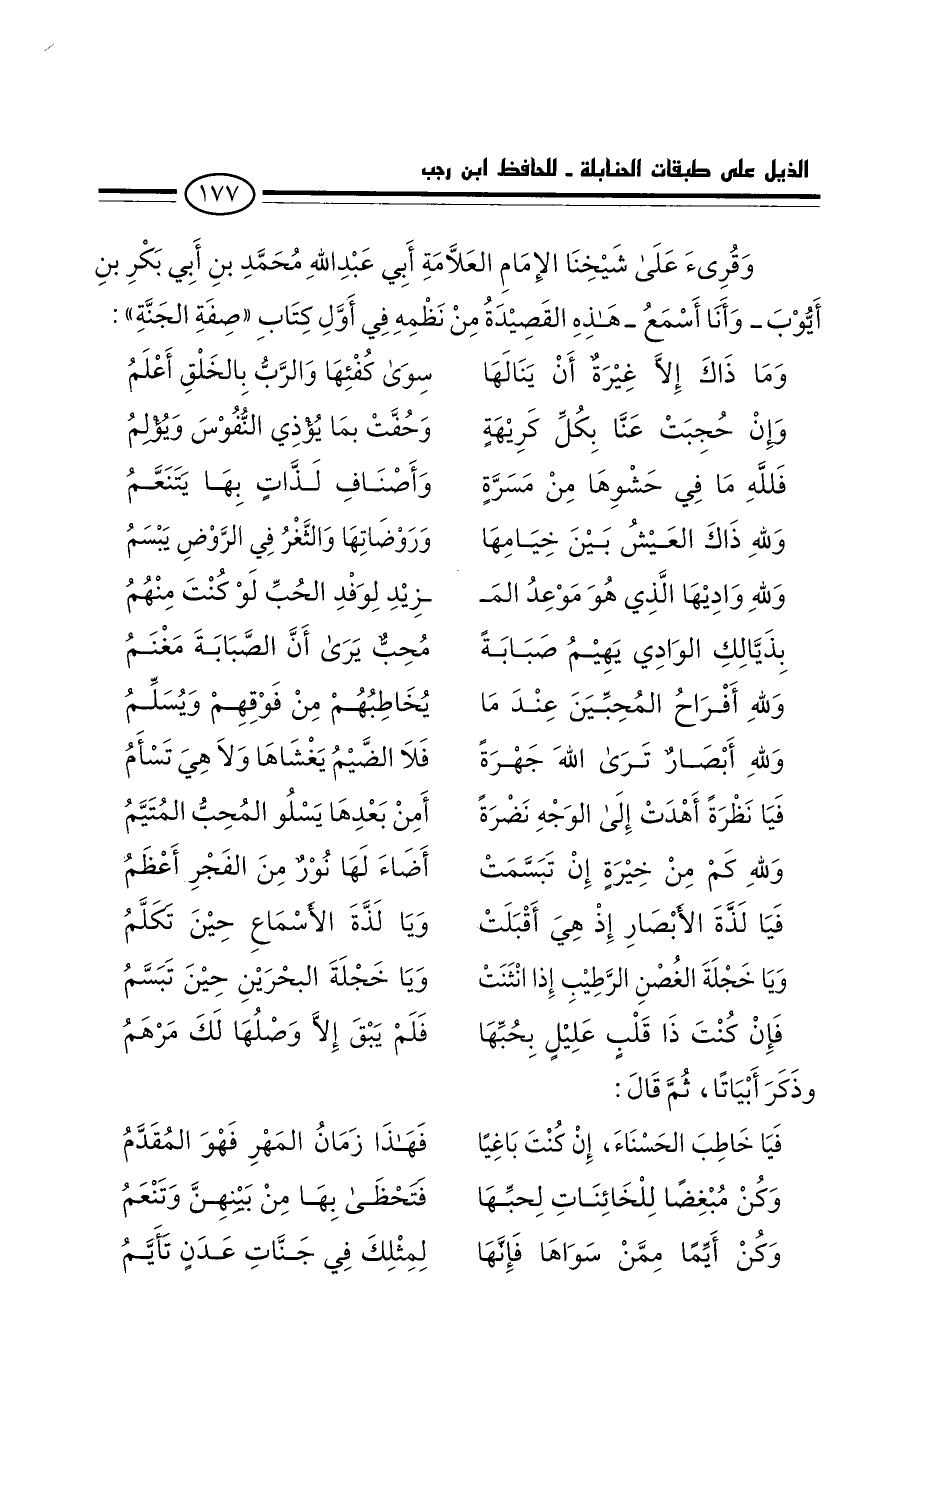 الذيل على طبقات الحنابلة ـ للحافظ ابن رجب
١٧٧
وَقُرِىءَ عَلَىٰ شَيْخِنَا الإِمَامِ العَلَّامَةِ أَبِي عَبْدِاللهِ مُحَمَّدِ بنِ أَبِي بَكْرِ بنِ
أَيُّوْبَ ـ وَأَنَا أَسْمَعُ ـ هَـٰذِهِ القَصِيْدَةُ مِنْ نَظْمِهِ فِي أَوَّلِ كِتَابِ «صِفَةِ الجَنَّةِ» :
وَمَا ذَاكَ إِلاَّ غِيْرَةٌ أَنْ يَنَالَهَا سِوَىٰ كُفْئِهَا وَالرَّبُّ بِالخَلْقِ أَعْلَمُ
وَإِنْ حُجِبَتْ عَنَّا بِكُلِّ كَرِيْهَةٍ وَحُفَّتْ بِمَا يُؤْذِي النُّفُوْسَ وَيُؤْلِمُ
فَلَلَّهِ مَا فِي حَشْوِهَا مِنْ مَسَرَّةٍ وَأَصْنَـافِ لَـذَّاتٍ بِهَـا يَتَنَعَّـمُ
وَللهِ ذَاكَ العَيْـشُ بَـيْنَ خِيَـامِهَا وَرَوْضَاتِهَا وَالثَّغْرُ فِي الرَّوْضِ يَبْسَمُ
وَللهِ وَادِيْهَا الَّذِي هُوَ مَوْعِدُ المَـ ـزِيْدِ لِوَفْدِ الحُبِّ لَوْ كُنْتَ مِنْهُمُ
بِذَيَّالِكِ الوَادِي يَهِيْـمُ صَبَـابَـةً مُحِبٌّ يَرَىٰ أَنَّ الصَّبَابَةَ مَغْنَـمُ
وَللهِ أَفْـرَاحُ المُحِبِّـيَنَ عِنْـدَ مَا يُخَاطِبُهُـمْ مِنْ فَوْقِهِـمْ وَيُسَلِّـمُ
وَللهِ أَبْصَـارٌ تَـرَىٰ اللهَ جَهْـرَةً فَلَا الضَّيْمُ يَغْشَاهَا وَلاَ هِيَ تَسْأَمُ
فَيَا نَظْرَةً أَهْدَتْ إِلَىٰ الوَجْهِ نَضْرَةً أَمِنْ بَعْدِهَا يَسْلُو المُحِبُّ المُتَيَّمُ
وَللهِ كَمْ مِنْ خِيْرَةٍ إِنْ تَبَسَّمَتْ أَضَاءَ لَهَا نُوْرٌ مِنَ الفَجْرِ أَعْظَمُ
فَيَا لَذَّةَ الأَبْصَارِ إِذْ هِيَ أَقْبَلَتْ وَيَا لَذَّةَ الأَسْمَاعِ حِيْنَ تَكَلَّمُ
وَيَا خَجْلَةَ الغُصْنِ الرَّطِيْبِ إِذا انْثَنَتْ وَيَا خَجْلَةَ البحْرَيْنِ حِيْنَ تَبَسَّمُ
فَإِنْ كُنْتَ ذَا قَلْبٍ عَلِيْلٍ بِحُبِّهَا فَلَمْ يَبْقَ إِلاَّ وَصْلُهَا لَكَ مَرْهَمُ
وذَكَرَ أَبْيَاتًا، ثُمَّ قَالَ :
فَيَا خَاطِبَ الحَسْنَاءَ، إِنْ كُنْتَ بَاغِيًا فَهَـٰذَا زَمَانُ المَهْرِ فَهْوَ المُقَدَّمُ
وَكُنْ مُبْغِضًا لِلْخَائِنَـاتِ لِحبِّـهَا فَتَحْظَـىٰ بِهَـا مِنْ بَيْنِهِـنَّ وَتَنْعَمُ
وَكُنْ أَيِّمًا مِمَّنْ سَوَاهَا فَإِنَّهَا لِمِثْلِكَ فِي جَنَّاتِ عَـدَنٍ تَأَيَّـمُ